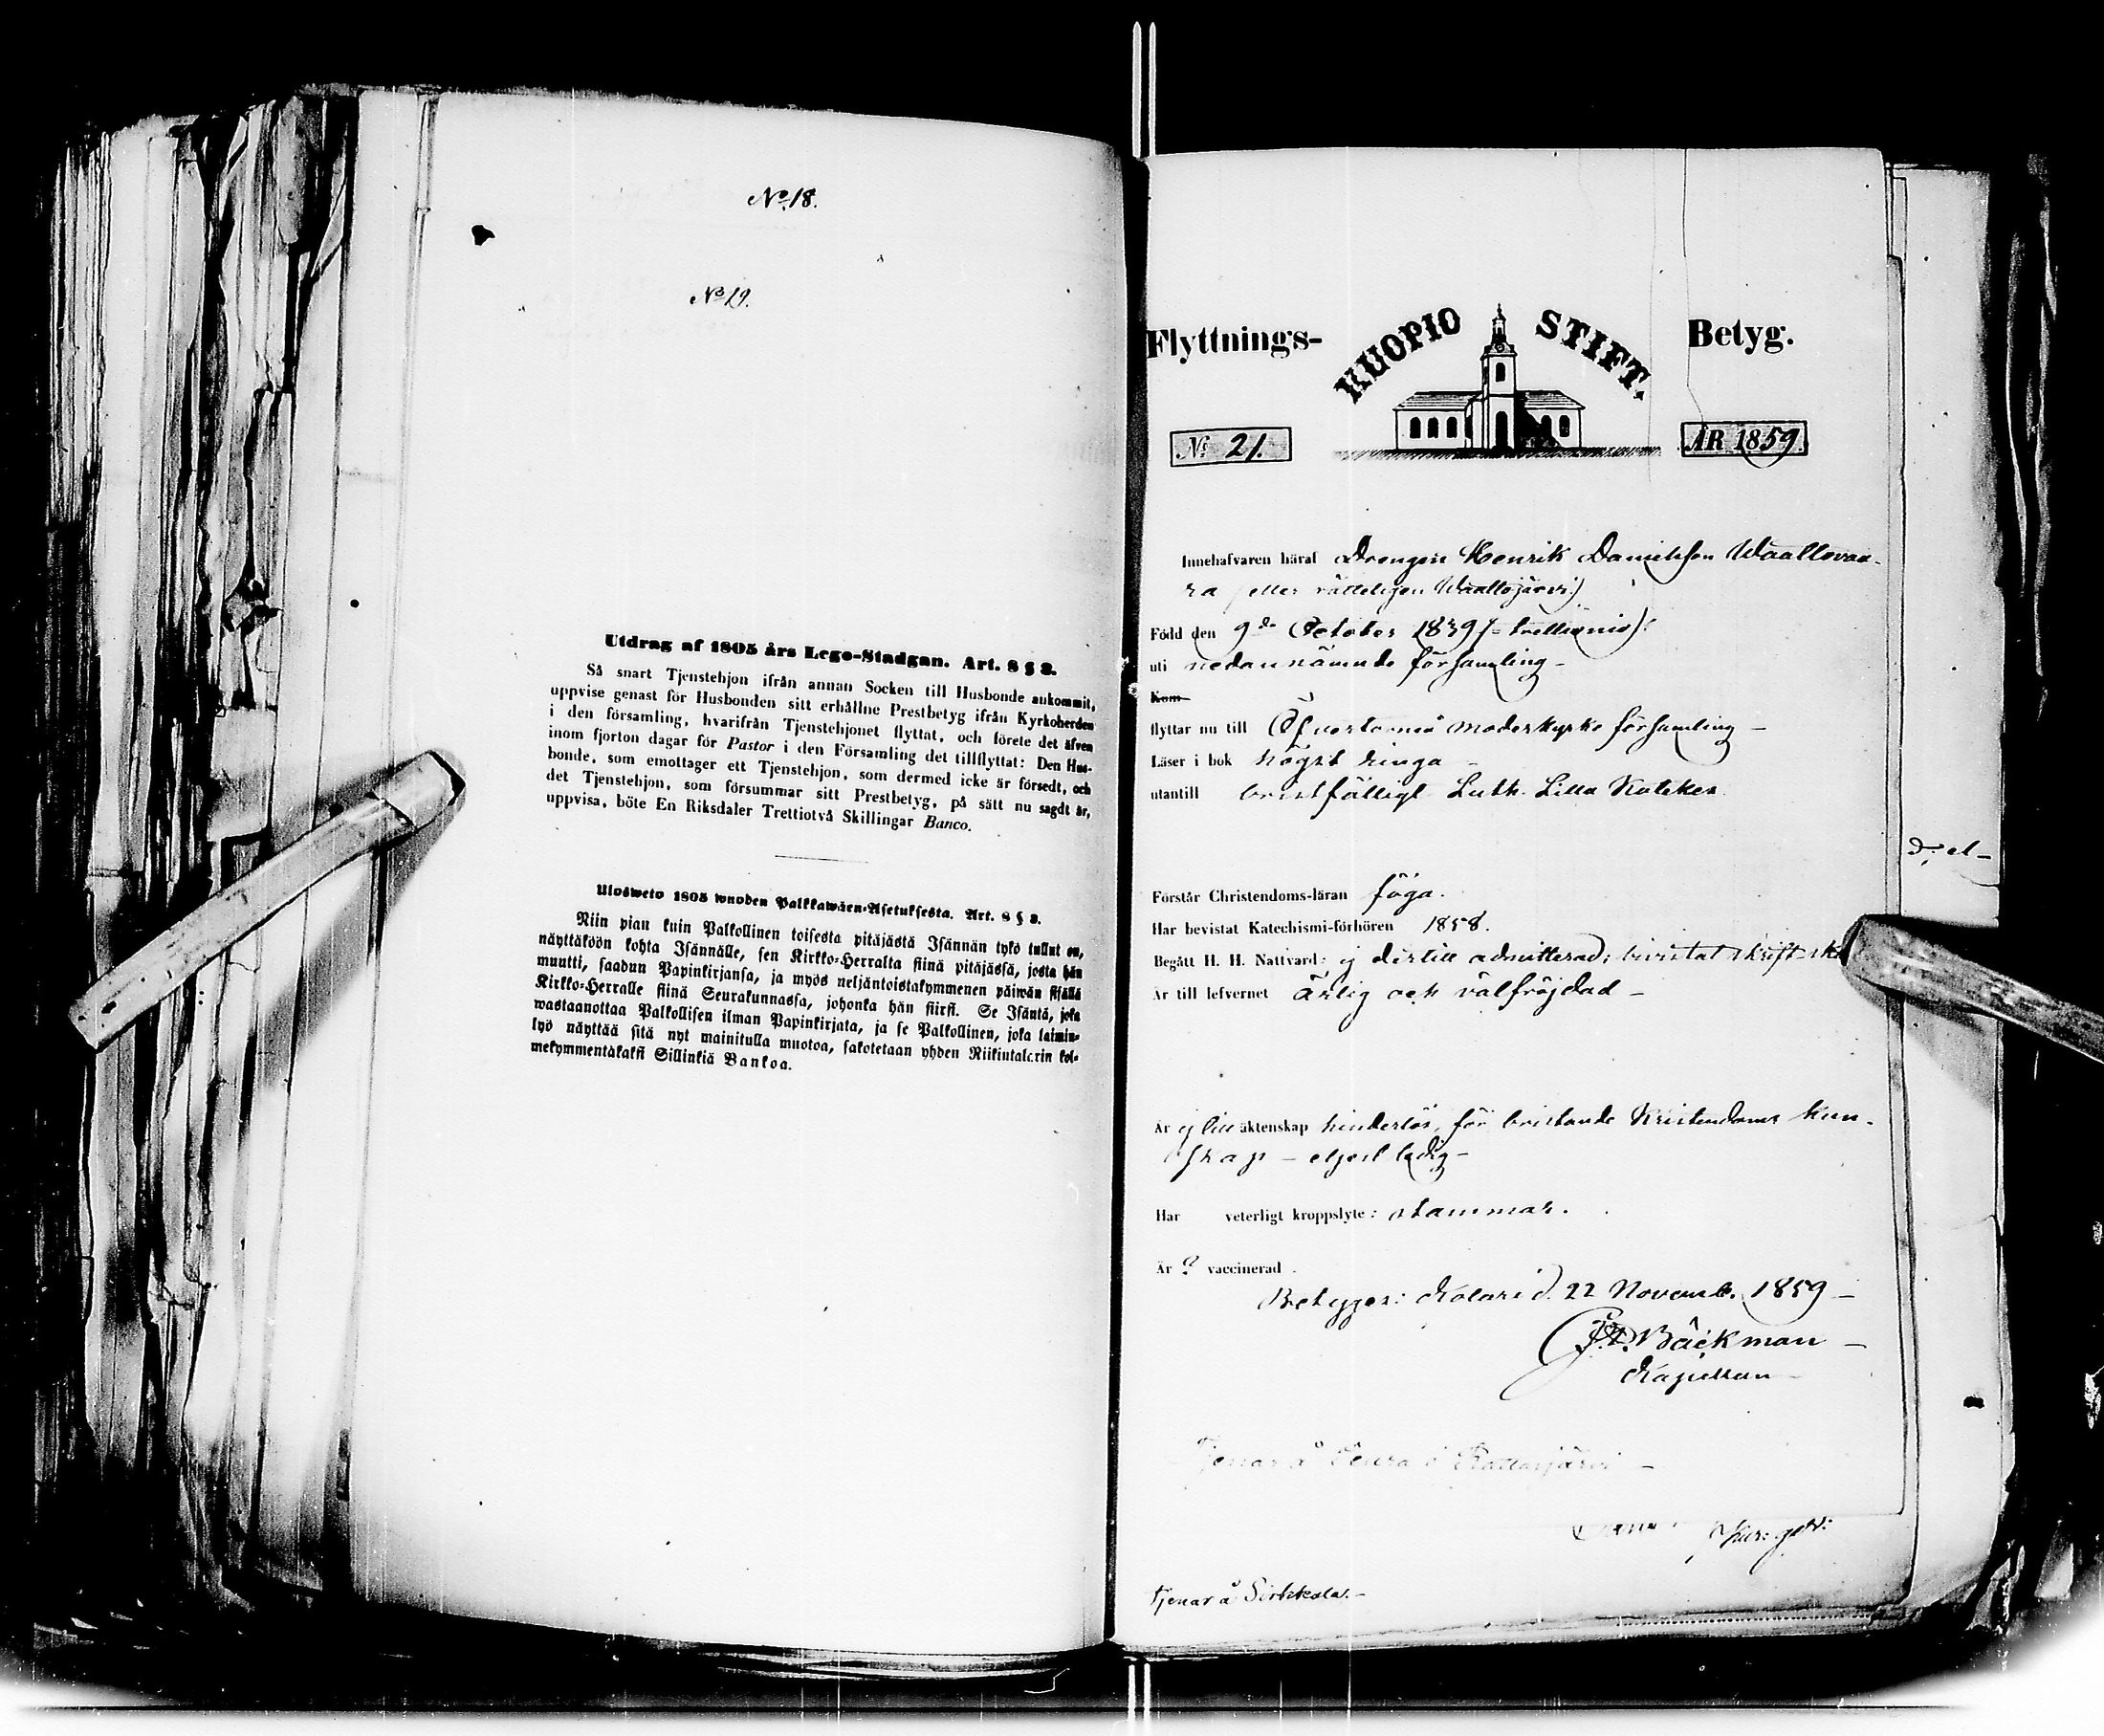 No 18.
No 19.
Utdrag af 1805 års Lego-Stadgan. Art. 8 § 3.
Så snart Tjenstehjon ifrån annan Socken till Husbonde ankommit,
uppvise genast för Husbonden sitt erhållne Prestbetyg ifrån Kyrkoherden
i den församling, hvarifrån Tjenstehjonet flyttat, och förete det äfven
inom fjorton dagar för Pastor i den Församling det tillflyttat: Den Hus-
bonde, som emottager ett Tjenstehjon, som dermed icke är försedt, och
det Tjenstehjon, som försummar sitt Prestbetyg, på sätt nu sagdt är,
uppvisa, böte En Riksdaler Trettiotvå Skillingar Banco.
Ulosweto 1805 wuoden Palkkawäen-Asetuksesta. Art. 8 § 3.
Niin pian kuin Palkollinen toisesta pitäjästä Isännän tykö tullut on,
näyttäköön kohta Isännälle, sen Kirkko-Herralta siinä pitäjässä, josta hän
muutti, saadun Papinkirjansa, ja myös neljäntoistakymmenen päiwän sisällä
Kirkko-Herralle siinä Seurakunnassa, johonka hän siirsi. Se Isäntä, joka
wastaanottaa Palkollisen ilman Papinkirjata, ja se Palkollinen, joka laimin-
lyö näyttää sitä nyt mainitulla muotoa, sakotetaan yhden Riikintalarin kol-
mekymmentäkaksi Sillinkiä Bankoa.
Flyttnings- KUOPIO STIFT. Betyg.
No 21. ÅR 1859.
Innehafvaren häraf Drengen Henrik Danielsson Waallovaa-
ra (eller rätteligen Waallojärvi)
Född den 9de October 1839 (= trettionio)
uti nedannämnde församling -
Kom
flyttar nu till Öfvertorneå moderkyrko församling -
Läser i bok högst ringa -
utantill bristfälligt Luth. Lilla Katekes.
Förstår Christendoms-läran föga.
Har bevistat Katechismi-förhören 1858.
Begått H. H. Nattvard: ej dertill admitterad; bevistat skrift-sko
Är till lefvernet ärlig och välfrejdad -
Är ej till äktenskap hinderlös, för bristande Kristendoms kun-
skap - eljest ledig -
Har veterligt kroppslyte: stammar.
Är ? vaccinerad.
Betygges: Kolari d. 22 Novemb. 1859 -
Bäckman -
Kapellan
Tjenar å i
tjenar å
d, el-